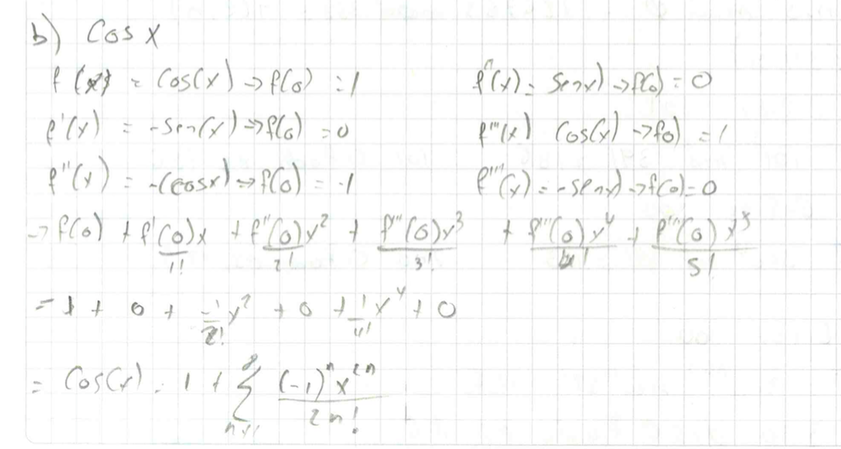 b) Cos x
f(x) = Cos(x) → f(0) = 1
f'(x) = -Sen(x) → f(0) = 0
f''(x) = -(cosx) → f(0) = -1
f'''(x) = Senx) → f(0) = 0
f''''(x) Cos(x) → f0) = 1
f'''''(x) = -senx) → f(0) = 0
→ f(0) + f'(0)x/1! + f''(0)x²/2! + f'''(0)x³/3! + f''''(0)x⁴/4! + f'''''(0)x⁵/5!
= 1 + 0 + -1/2! x² + 0 + 1/4! x⁴ + 0
= Cos(x) = 1 + Σ (-1)ⁿ x²ⁿ / 2n!